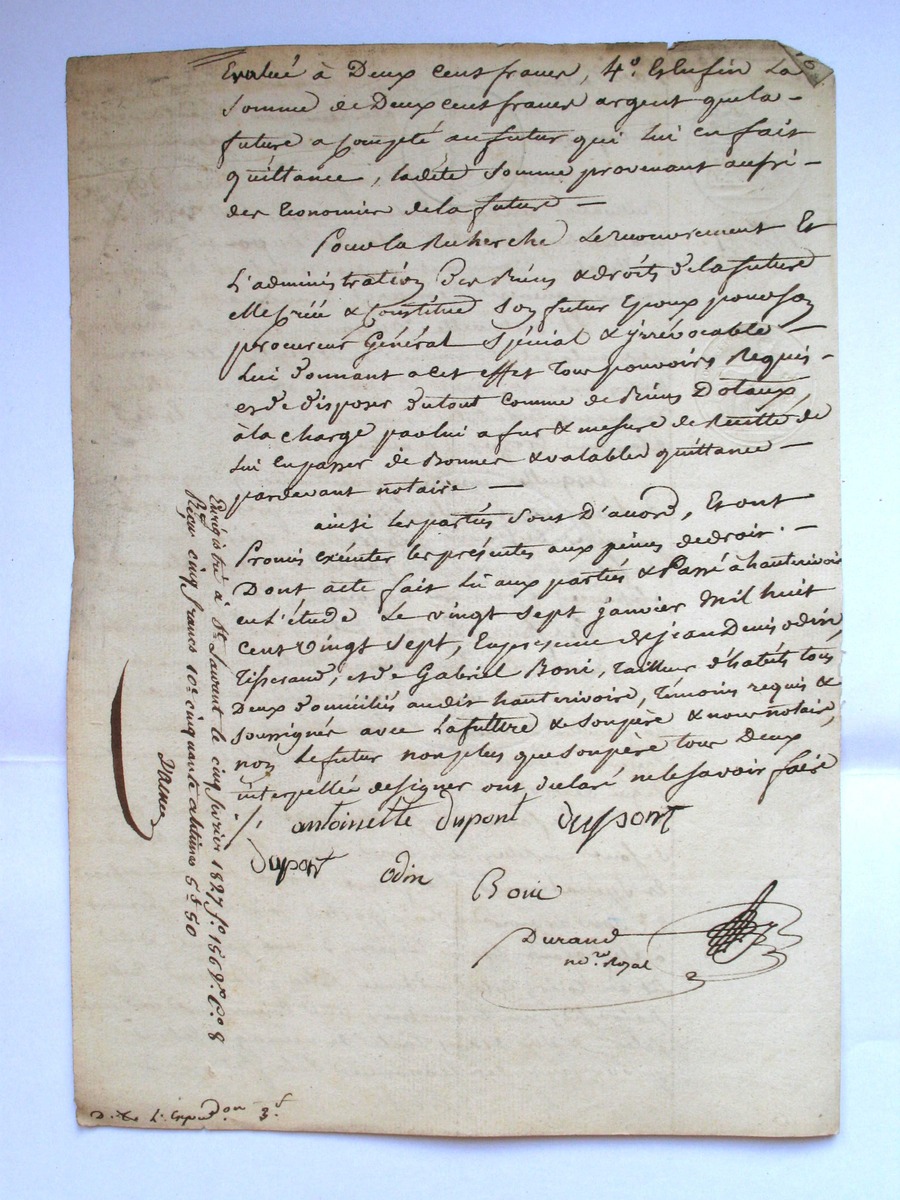 Evalué à Deux cent francs, 4º. Et Enfin La
Somme de Deux cent francs argent que la
future a compté au futur qui lui en fait
quittance, ladite Somme provenant aussi
des Economies de la future —
Pour la Recherche Le recouvrement Et
L'administration des Biens & droits de la future
elle créé & Constitue son futur Epoux pour son
procureur Général Spécial & irrévocable —
Lui donnant a cet effet tous pouvoirs Requis
et de disposer du tout comme de Biens Dotaux,
à la charge par lui a fur & mesure de Recette de
Lui en passer de Bonnes & valables quittances —
pardevant notaire —
ainsi les parties sont D'accord, Et ont
Promis exécuter les présentes aux peines de droit. —
Dont acte fait Lu aux parties & Passé à hauterivoire
en L'étude Le vingt sept janvier Mil huit
Cent Vingt Sept, En présence de jean Denis odin,
Tisserand, et de Gabriel Boni, tailleur d'habits tous
Deux domiciliés audit hauterivoire, témoins requis &
soussignés avec La future & son père & nous notaire,
non Le futur non plus que son père tous Deux
interpellés de signer ont déclaré ne le savoir faire
antoinette dupont dupont
dupont odin Boni
Durand
nore. Royal
Enregistré à St. Laurent le cinq février 1827 fo. 156 Vo. Co. 8
Reçu cinq francs 10e. cinquante centimes 5f 50
D. L'Expedon 3f